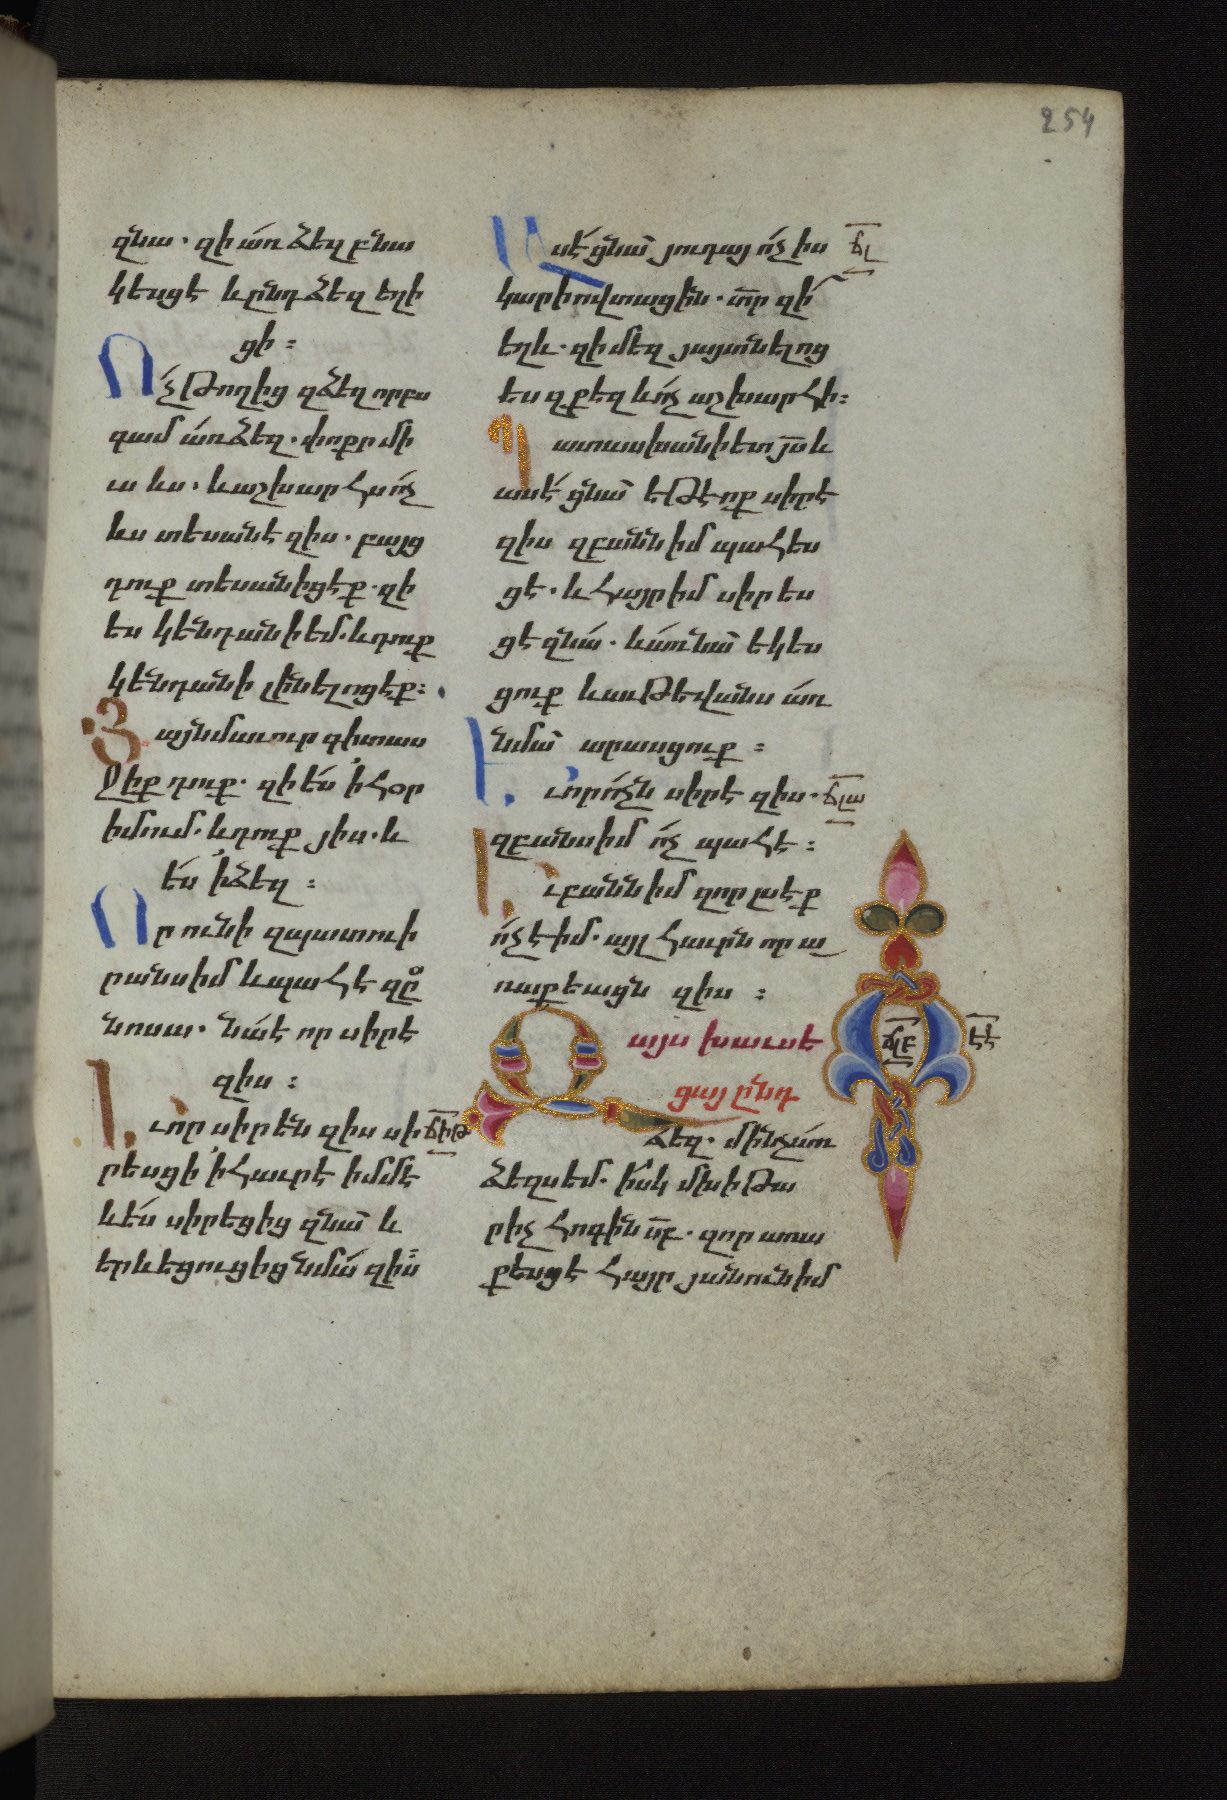 254
զնա · զի առ ձեզ բնա
կեսցէ և ընդ ձեզ եղի
ցի ։
Ոչ թողից զձեզ որբս
գամ առ ձեզ · փոքր մի
ւս ևս · և աշխարհս ոչ
ևս տեսանէ զիս · բայց
դուք տեսանիցէք · զի
ես կենդանի եմ · և դուք
կենդանի լինելոցէք ։
Յայնմ աւուր գիտաս
ջիք դուք · զի ես ի հօր
իմում · և դուք յիս · և
ես ի ձեզ ։
Որ ունի զպատուի
րանս իմ և պահէ զը
նոսա · նա է որ սիրէ
զիս ։
Եւ որ սիրէն զիս սի ՃԻԹ
րեսցի ի հաւրէ իմմէ
և ես սիրեցից զնա և
երևեցուցից նմա զիս
Ասէ ցնա յուդայ ոչ իս ՃԼ
կարիովտացին · տր զի
եղև · զի մեզ յայտնելոց
ես զքեզ և ոչ աշխարհի ։
Պատասխանի ետ յս և
ասէ ցնա եթէ ոք սիրէ
զիս զբանն իմ պահես
ցէ · և հայր իմ սիրես
ցէ զնա · և առ նա եկես
ցուք և աւթեվանս առ
նմա արասցուք ։
Եւ որ ոչն սիրէ զիս · ՃԼԱ
զբանս իմ ոչ պահէ ։
Եւ բանն իմ զոր լսէք
ոչ է իմ · այլ հաւրն որ ա
ռաքեացն զիս ։
Զայս խաւսե ՃԼԲ ԷԷ
ցայ ընդ
ձեզ · մինչ առ
ձեզս եմ · իսկ մխիթա
րիչ հոգին սբ · զոր առա
քեսցէ հայր յանուն իմ